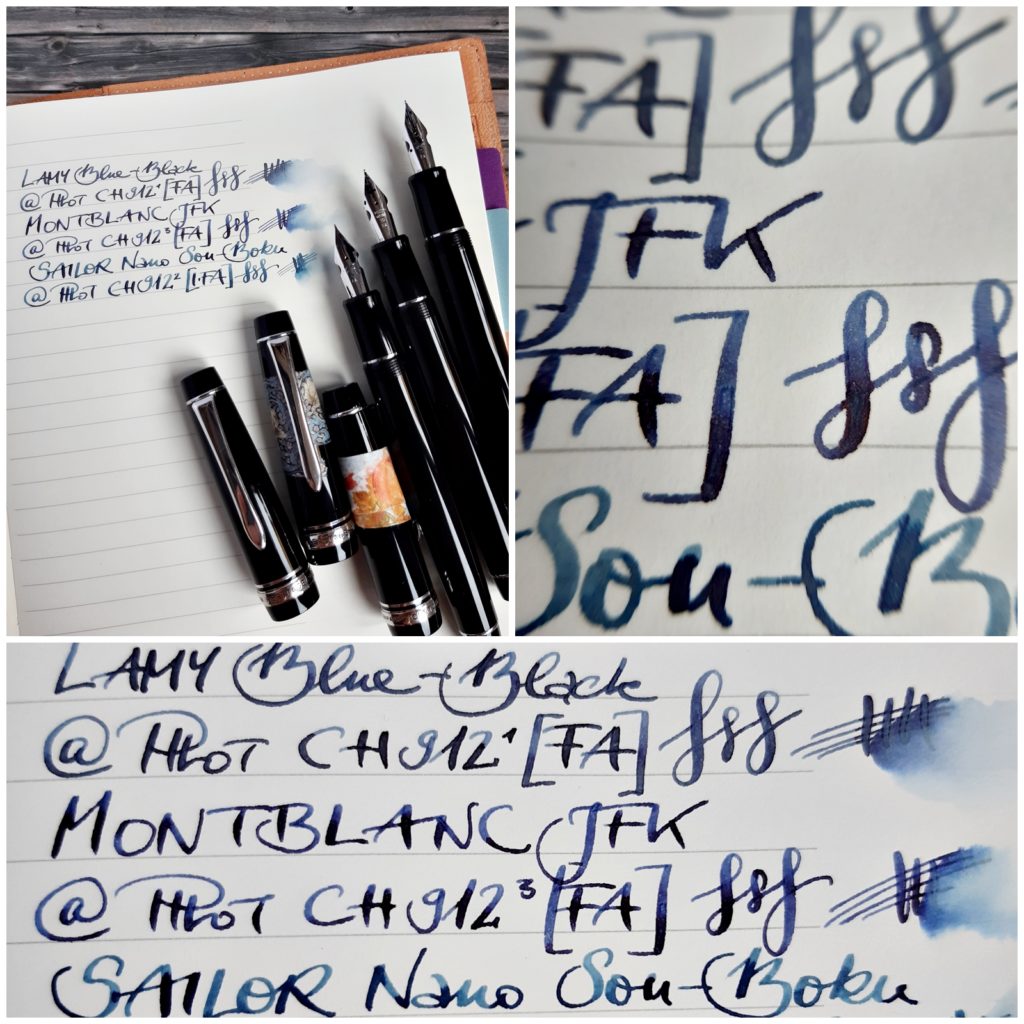 LAMY Blue-Black
@ PILOT CH912¹ [FA] fsf
MONTBLANC JFK
@ PILOT CH912³ [FA] fsf
SAILOR Nano Sou-Boku
@ PILOT CH912² [1·FA] fsf
FA] fsf
JFK
FA] fsf
Sou-B
LAMY Blue-Black
@ PILOT CH912¹ [FA] fsf
MONTBLANC JFK
@ PILOT CH912³ [FA] fsf
SAILOR Nano Sou-Boku